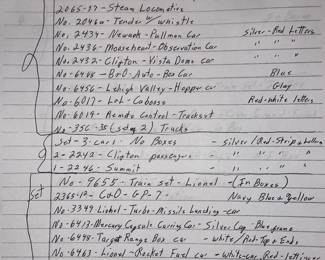 2065-17 - Steam Locomotive
No. 2046w - Tender w/ whistle
No. 2434 - Newark - Pullman Car - Silver - Red Letters
No. 2436 - Mooseheart - Observation Car " " "
No. 2432 - Clifton - Vista Dome Car " " "
No. 6468 - B&O - Auto - Box Car Blue
No. 6456 - Lehigh Valley - Hopper Car Gray
No. 6017 - Lot - Caboose Red - white letters
No. 6019 - Remote Control - Trackset
No - 35C-35 Trucks
Set - 3 cars - No Boxes - Silver / Red - Strip
2 - 2242 - Clifton passengers - " " "
1 - 2246 - Summit - " " "
Set
No - 9655 - Train set - Lionel - (In Boxes)
2365-12 - C&O - GP-7 - Navy Blue & Yellow
No - 3349 - Lionel - Turbo - Missile Landing - car
No - 6413 - Mercury Capsule Carring Car - Silver Cap - Blue frame
No - 6448 - Target Range Box car - white / Red - Top & Ends
No - 6463 - Lionel - Rocket Fuel car - white - car, Red - lettering